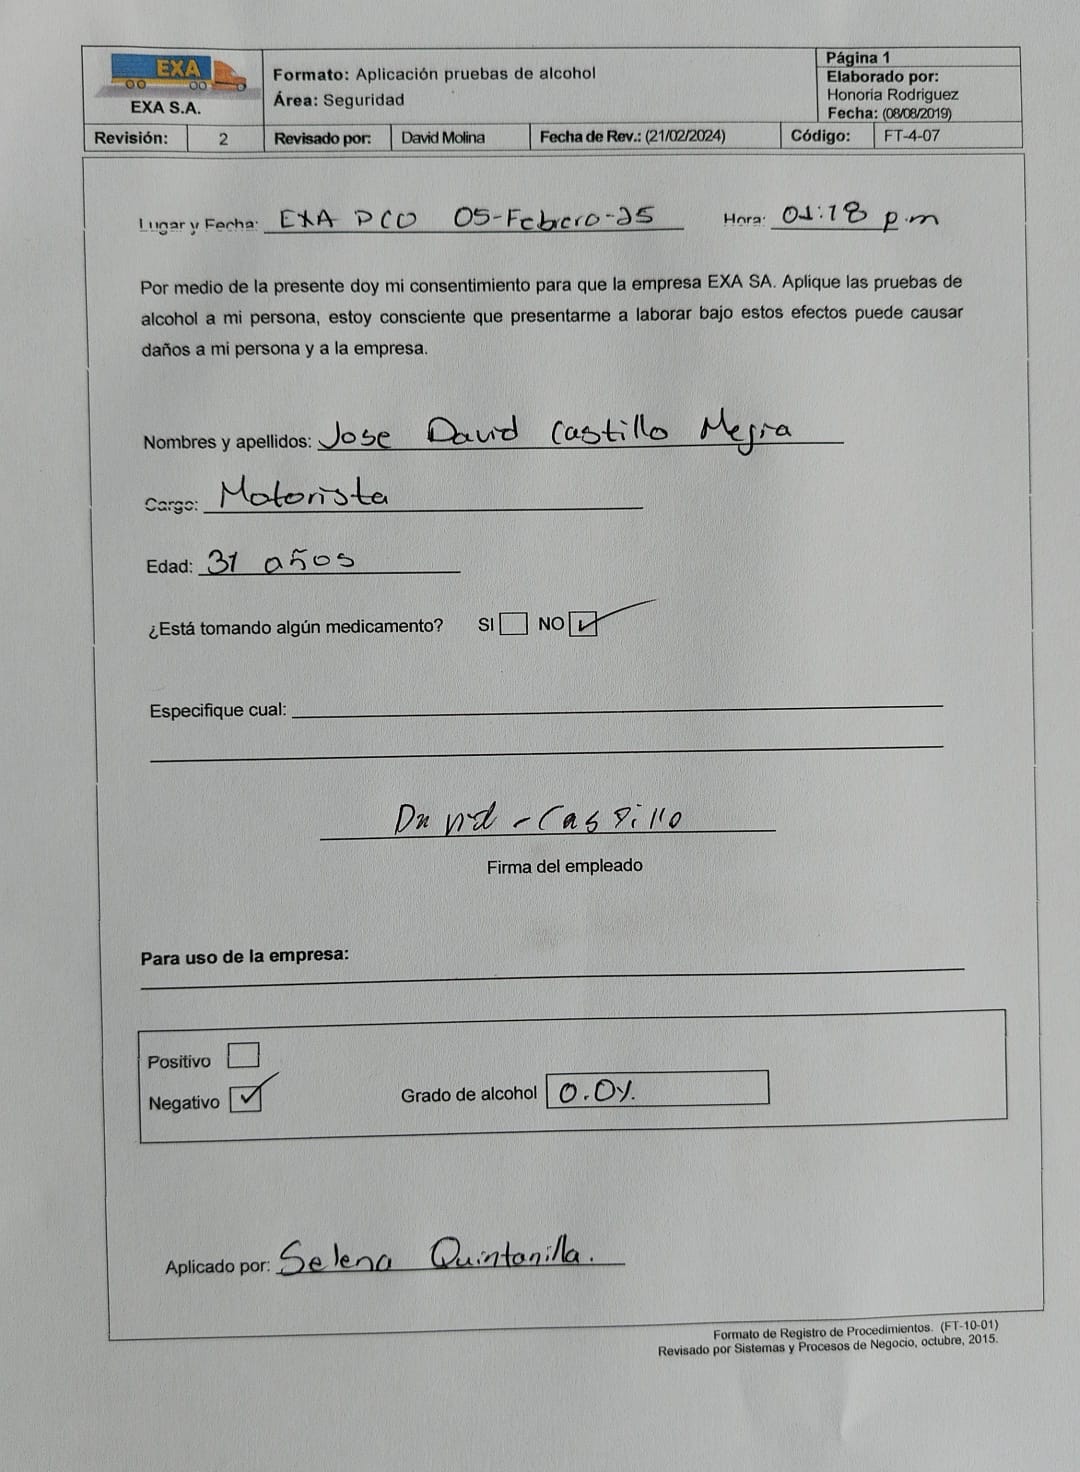 EXA
EXA S.A.
Formato: Aplicación pruebas de alcohol
Área: Seguridad
Página 1
Elaborado por:
Honoria Rodriguez
Fecha: (08/08/2019)
Revisión: 2 Revisado por: David Molina Fecha de Rev.: (21/02/2024) Código: FT-4-07
Lugar y Fecha: EXA PCO 05-Febrero-25 Hora: 01:18 p.m
Por medio de la presente doy mi consentimiento para que la empresa EXA SA. Aplique las pruebas de
alcohol a mi persona, estoy consciente que presentarme a laborar bajo estos efectos puede causar
daños a mi persona y a la empresa.
Nombres y apellidos: Jose David Castillo Mejia
Cargo: Motorista
Edad: 31 años
¿Está tomando algún medicamento? SI NO
Especifique cual:
David-Castillo
Firma del empleado
Para uso de la empresa:
Positivo
Negativo
Grado de alcohol 0.0%
Aplicado por: Selena Quintanilla.
Formato de Registro de Procedimientos. (FT-10-01)
Revisado por Sistemas y Procesos de Negocio, octubre, 2015.